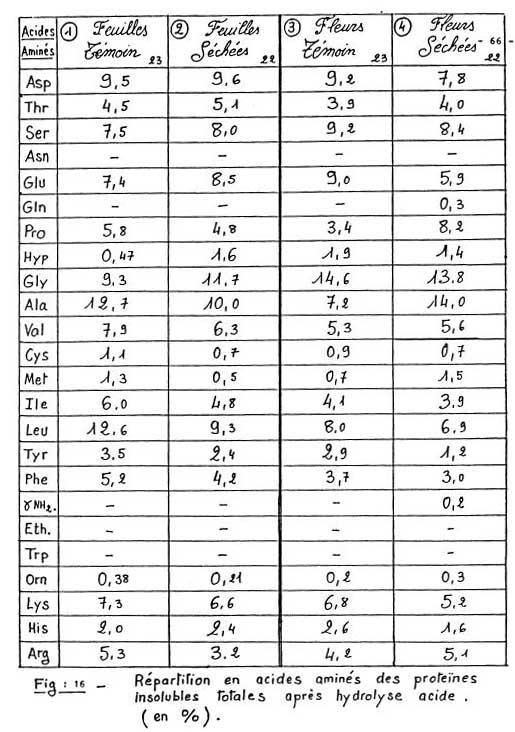 Acides Aminés ① Feuilles Témoin 23 ② Feuilles Séchées 22 ③ Fleurs Témoin 23 ④ Fleurs Séchées 22 - 66 -
Asp 9,5 9,6 9,2 7,8
Thr 4,5 5,1 3,9 4,0
Ser 7,5 8,0 9,2 8,4
Asn – – – –
Glu 7,4 8,5 9,0 5,9
Gln – – – 0,3
Pro 5,8 4,8 3,4 8,2
Hyp 0,47 1,6 1,9 1,4
Gly 9,3 11,7 14,6 13.8
Ala 12,7 10,0 7,2 14,0
Val 7,9 6,3 5,3 5,6
Cys 1,1 0,7 0,9 0,7
Met 1,3 0,5 0,7 1,5
Ile 6,0 4,8 4,1 3,9
Leu 12,6 9,3 8,0 6,9
Tyr 3,5 2,4 2,9 1,2
Phe 5,2 4,2 3,7 3,0
γNH2. – – – 0,2
Eth. – – – –
Trp – – – –
Orn 0,38 0,21 0,2 0,3
Lys 7,3 6,6 6,8 5,2
His 2,0 2,4 2,6 1,6
Arg 5,3 3.2 4,2 5,1
Fig : 16 – Répartition en acides aminés des protéines
insolubles totales après hydrolyse acide .
( en % ) .